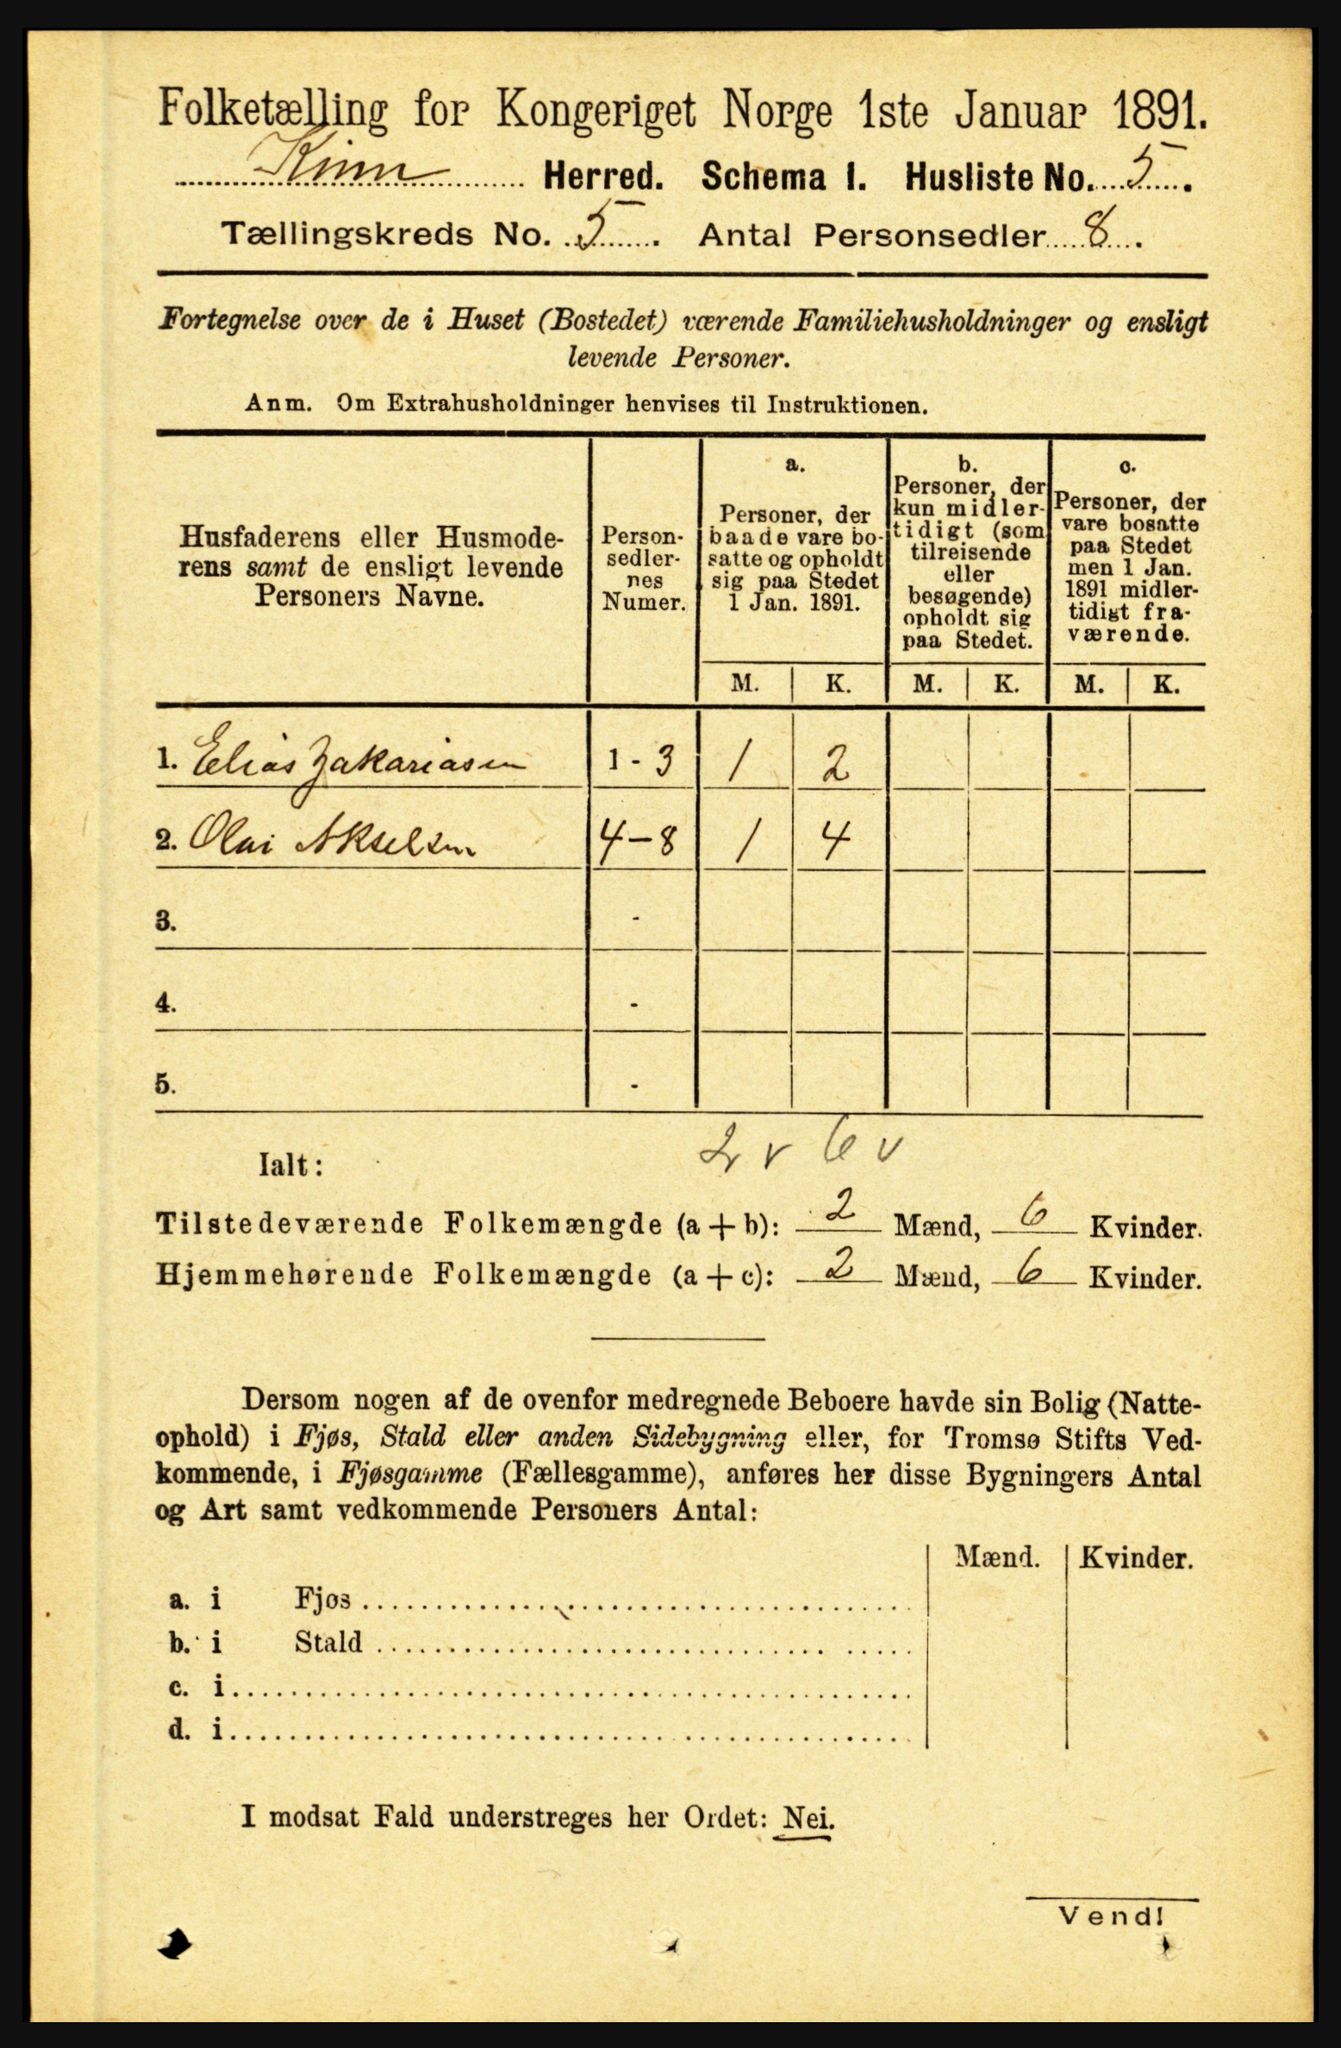 Folketælling for Kongeriget Norge 1ste Januar 1891.
Kinn Herred. Schema 1. Husliste No. 5.
Tællingskreds No. 5. Antal Personsedler 8.
Fortegnelse over de i Huset (Bostedet) værende Familiehusholdninger og ensligt
levende Personer.
Anm. Om Extrahusholdninger henvises til Instruktionen.
Husfaderens eller Husmode-
rens samt de ensligt levende
Personers Navne.
Person-
sedler-
nes
Numer.
a.
Personer, der
baade vare bo-
satte og opholdt
sig paa Stedet
1 Jan. 1891.
b.
Personer, der
kun midler-
tidigt (som
tilreisende
eller
besøgende)
opholdt sig
paa Stedet.
c.
Personer, der
vare bosatte
paa Stedet
men 1 Jan.
1891 midler-
tidigt fra-
værende.
M. K. M. K. M. K.
1. Elias Zakariasen 1-3 1 2
2. Olai Akselsen 4-8 1 4
3. -
4. -
5. -
2 v 6 v
Ialt:
Tilstedeværende Folkemængde (a+b): 2 Mænd, 6 Kvinder.
Hjemmehørende Folkemængde (a+c): 2 Mænd, 6 Kvinder.
Dersom nogen af de ovenfor medregnede Beboere havde sin Bolig (Natte-
ophold) i Fjøs, Stald eller anden Sidebygning eller, for Tromsø Stifts Ved-
kommende, i Fjøsgamme (Fællesgamme), anføres her disse Bygningers Antal
og Art samt vedkommende Personers Antal:
Mænd. Kvinder.
a. i Fjøs
b. i Stald
c. i
d. i
I modsat Fald understreges her Ordet: Nei.
Vend!